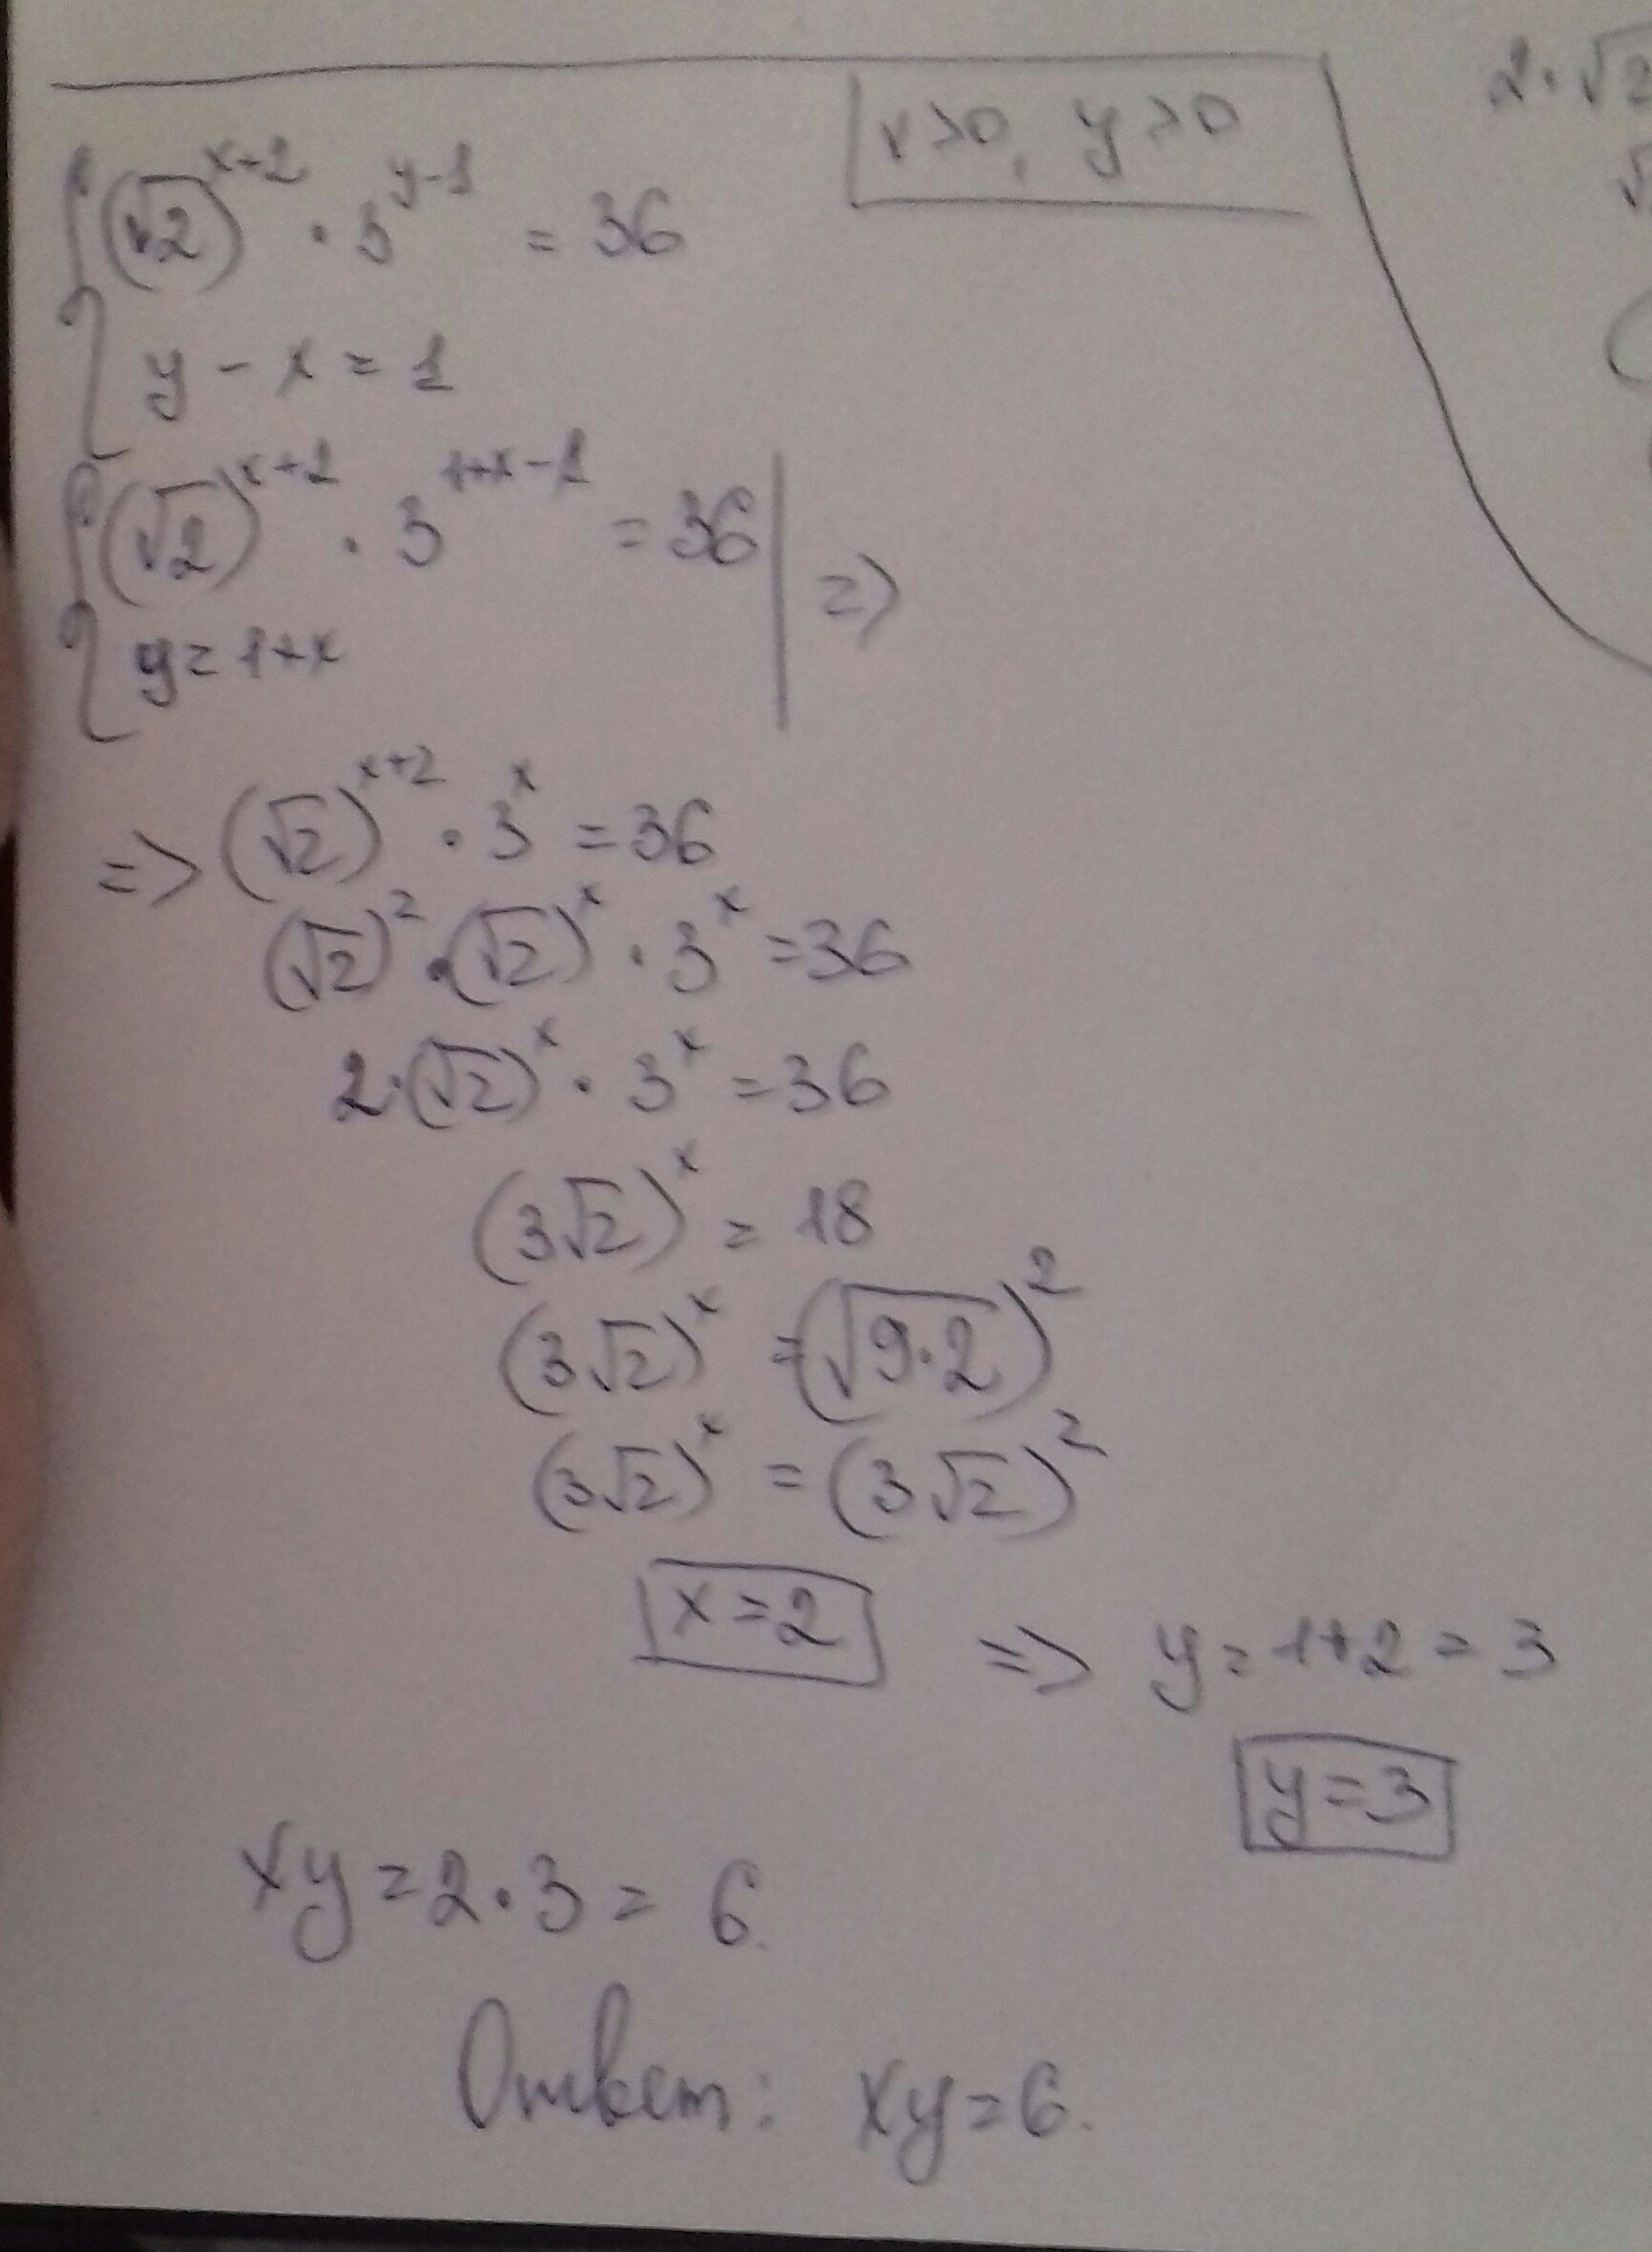 x>0, y>0
(√2)^(x+2) · 3^(y-1) = 36
y - x = 1
(√2)^(x+2) · 3^(1+x-1) = 36 | =>
y = 1+x
=> (√2)^(x+2) · 3^x = 36
(√2)^2 · (√2)^x · 3^x = 36
2·(√2)^x · 3^x = 36
(3√2)^x = 18
(3√2)^x = (√(9·2))^2
(3√2)^x = (3√2)^2
x = 2 => y = 1+2 = 3
y = 3
xy = 2·3 = 6.
Ответ: xy = 6.
2·√2